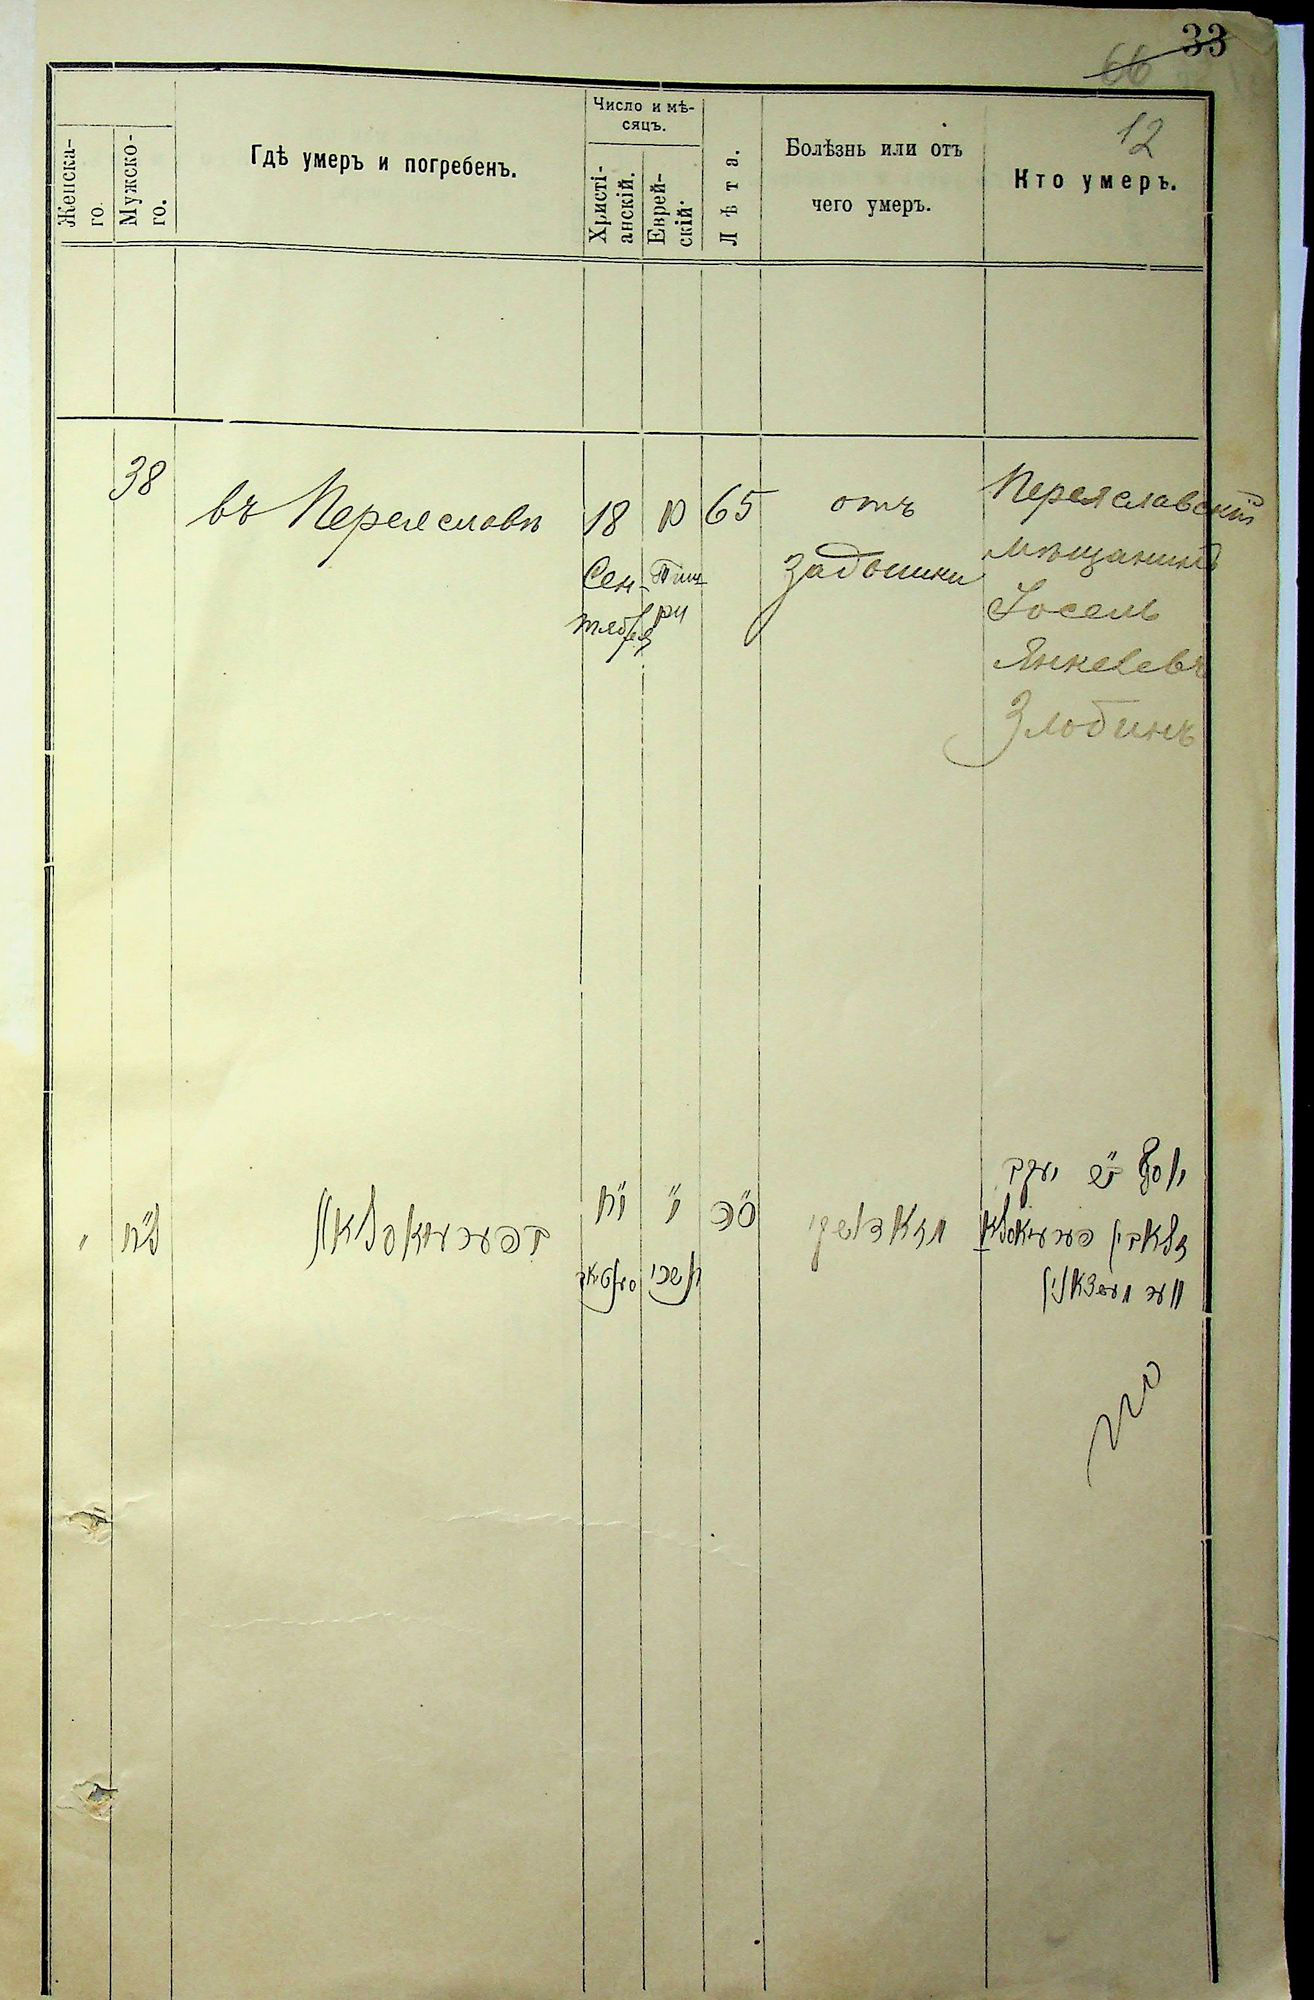 33
66
12
Женска-
го.
Мужско-
го.
Гдѣ умеръ и погребенъ.
Число и мѣ-
сяцъ.
Христі-
анскій.
Еврей-
скій.
Лѣта.
Болѣзнь или отъ
чего умеръ.
Кто умеръ.
38
въ Переяславѣ
18
Сен-
тября
10
Тиш-
ри
65
отъ
Задышки
Переяславскій
мѣщанинъ
Іосель
Янкелевъ
Злобинъ
ל״ח
י״ח
י״
תשרי
ס״ה
יוסף ב״ר יעקב